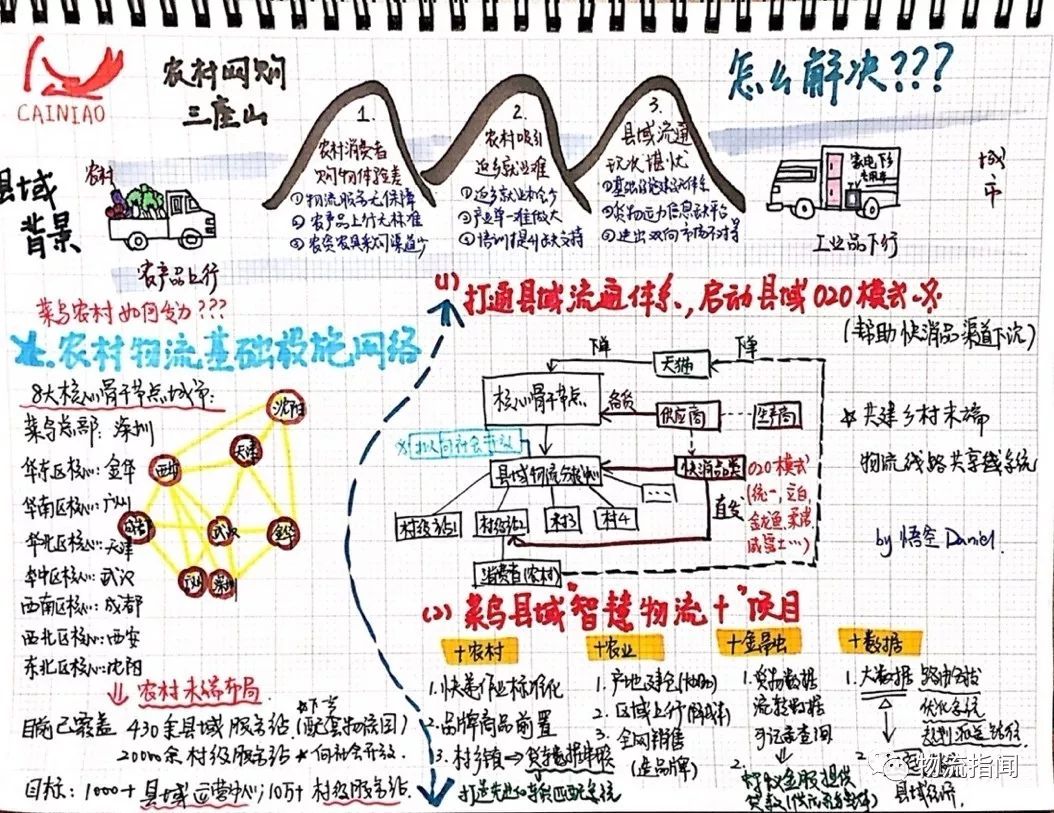 CAINIAO
农村网购
三座山
怎么解决???
县域
背景
农村
农产品上行
1.
农村消费者
购物体验差
①物流服务无保障
②农产品上行无标准
2.
农村吸引
返乡就业难
①返乡就业机会少
②产业单一难做大
3.
县域流通
现状堪忧
①基础设施建设无体系
②货物运力信息无平台
③进出双向市场不对等
家电下乡
专用车
城
市
工业品下行
菜鸟农村如何发力???
农村物流基础设施网络
8大核心骨干节点城市:
菜鸟总部: 深圳
华东区核心: 金华
华南区核心: 广州
华北区核心: 天津
华中区核心: 武汉
西南区核心: 成都
西北区核心: 西安
东北区核心: 沈阳
沈阳
天津
西安
成都
武汉
金华
广州
深圳
农村末端布局
目前已覆盖 430余县域服务站(配套物流园)
20000余村级服务站 * 向社会开放
目标: 1000+ 县域运营中心; 10万+ 村级服务站.
(1) 打通县域流通体系, 启动县域O2O模式
(帮助快消品渠道下沉)
下单
天猫
下单
核心骨干节点
备货
供应商
生产商
拟向社会开放
县域物流分拨中心
快消品类
O2O模式
(统一, 立白,
金龙鱼, 柔儒,
威露士…)
直发
村级站1
村级站2
村3
村4
...
消费者(农村)
* 共建乡村末端
物流线路共享线系统
by 悟空 Daniel.
(2) 菜鸟县域"智慧物流+"项目
+农村
1. 快递作业标准化
2. 品牌商品前置
3. 村乡镇→
+农业
1. 产地建仓
2. 区域上行
3. 全网销售
(造品牌)
+金融
1. 货物数据
流转数据
可记录查询
2.
+数据
1. 大数据
优化
2.
县域经济.
物流指闻